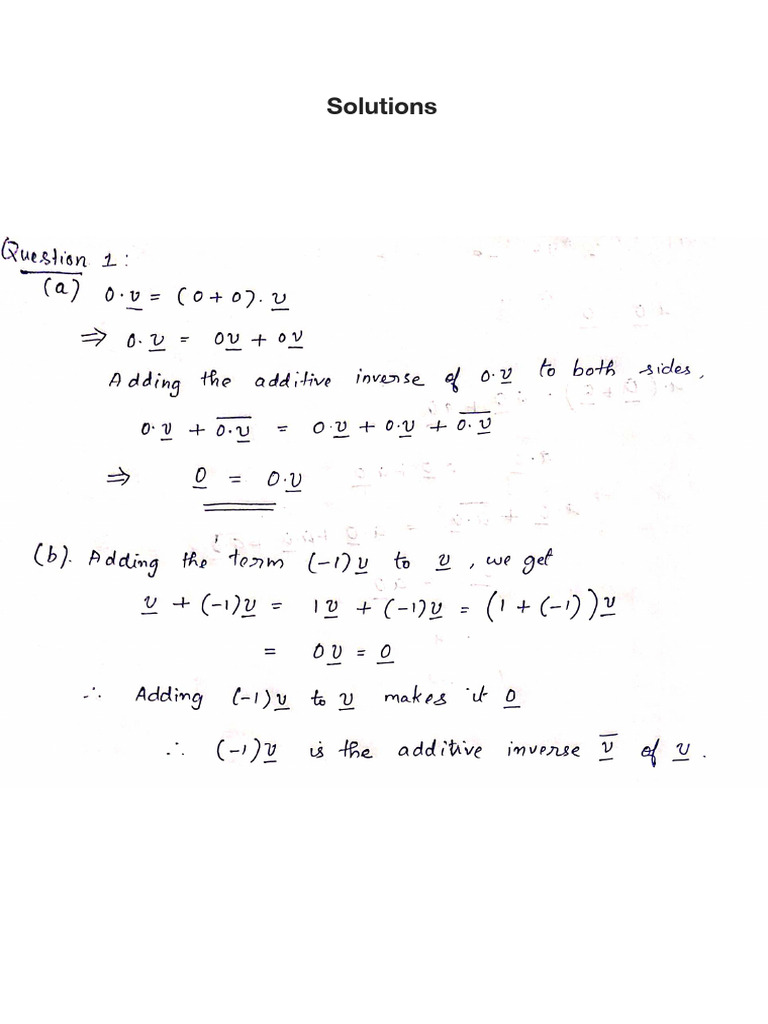 Solutions
Question 1:
(a) 0·v̲ = (0+0)·v̲
⇒ 0·v̲ = 0v̲ + 0v̲
Adding the additive inverse of 0·v̲ to both sides,
0·v̲ + \overline{0·v̲} = 0·v̲ + 0·v̲ + \overline{0·v̲}
⇒ 0̲ = 0·v̲
(b). Adding the term (-1)v̲ to v̲, we get
v̲ + (-1)v̲ = 1v̲ + (-1)v̲ = (1 + (-1))v̲
= 0v̲ = 0̲
∴ Adding (-1)v̲ to v̲ makes it 0̲
∴ (-1)v̲ is the additive inverse \overline{v̲} of v̲.